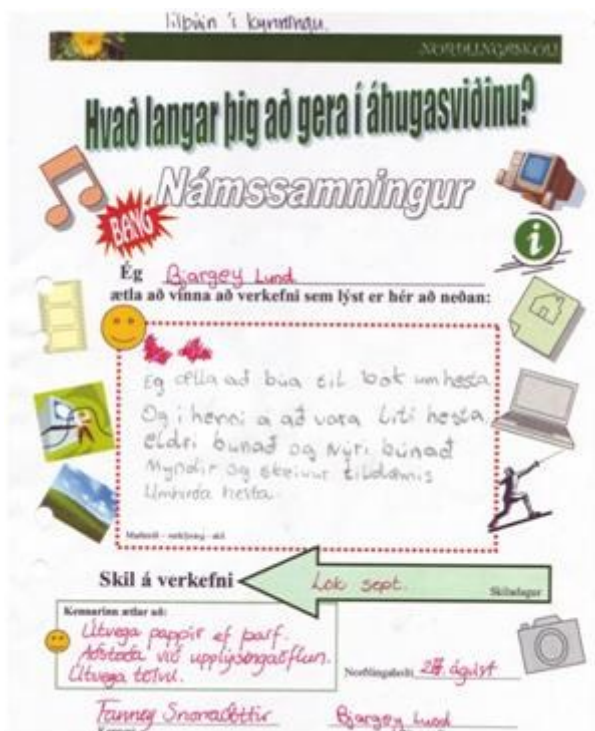 tilbúin í kynningu.
NORÐLINGASKÓLI
Hvað langar þig að gera í áhugasviðinu?
Námssamningur
BANG
i
Ég Bjargey Lund
ætla að vinna að verkefni sem lýst er hér að neðan:
Eg ætla að búa til bók um hesta
Og i henni á að vara Liti hesta
eldri bunað og Nýri búnað
Myndir og greinur tildæmis
Umhirða hesta.
Markmið – verklýsing - skil
Skil á verkefni
Lok sept.
Skiladagur
Kennarinn ætlar að:
Útvega pappír ef þarf.
Aðstoða við upplýsingaöflun.
Útvega tölvu.
Norðlingaholti ágúst
Fanney Snorradóttir Bjargey Lund